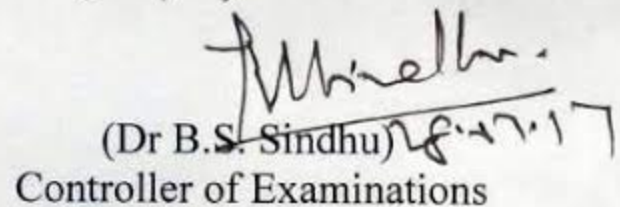 (Dr B.S. Sindhu)
Controller of Examinations